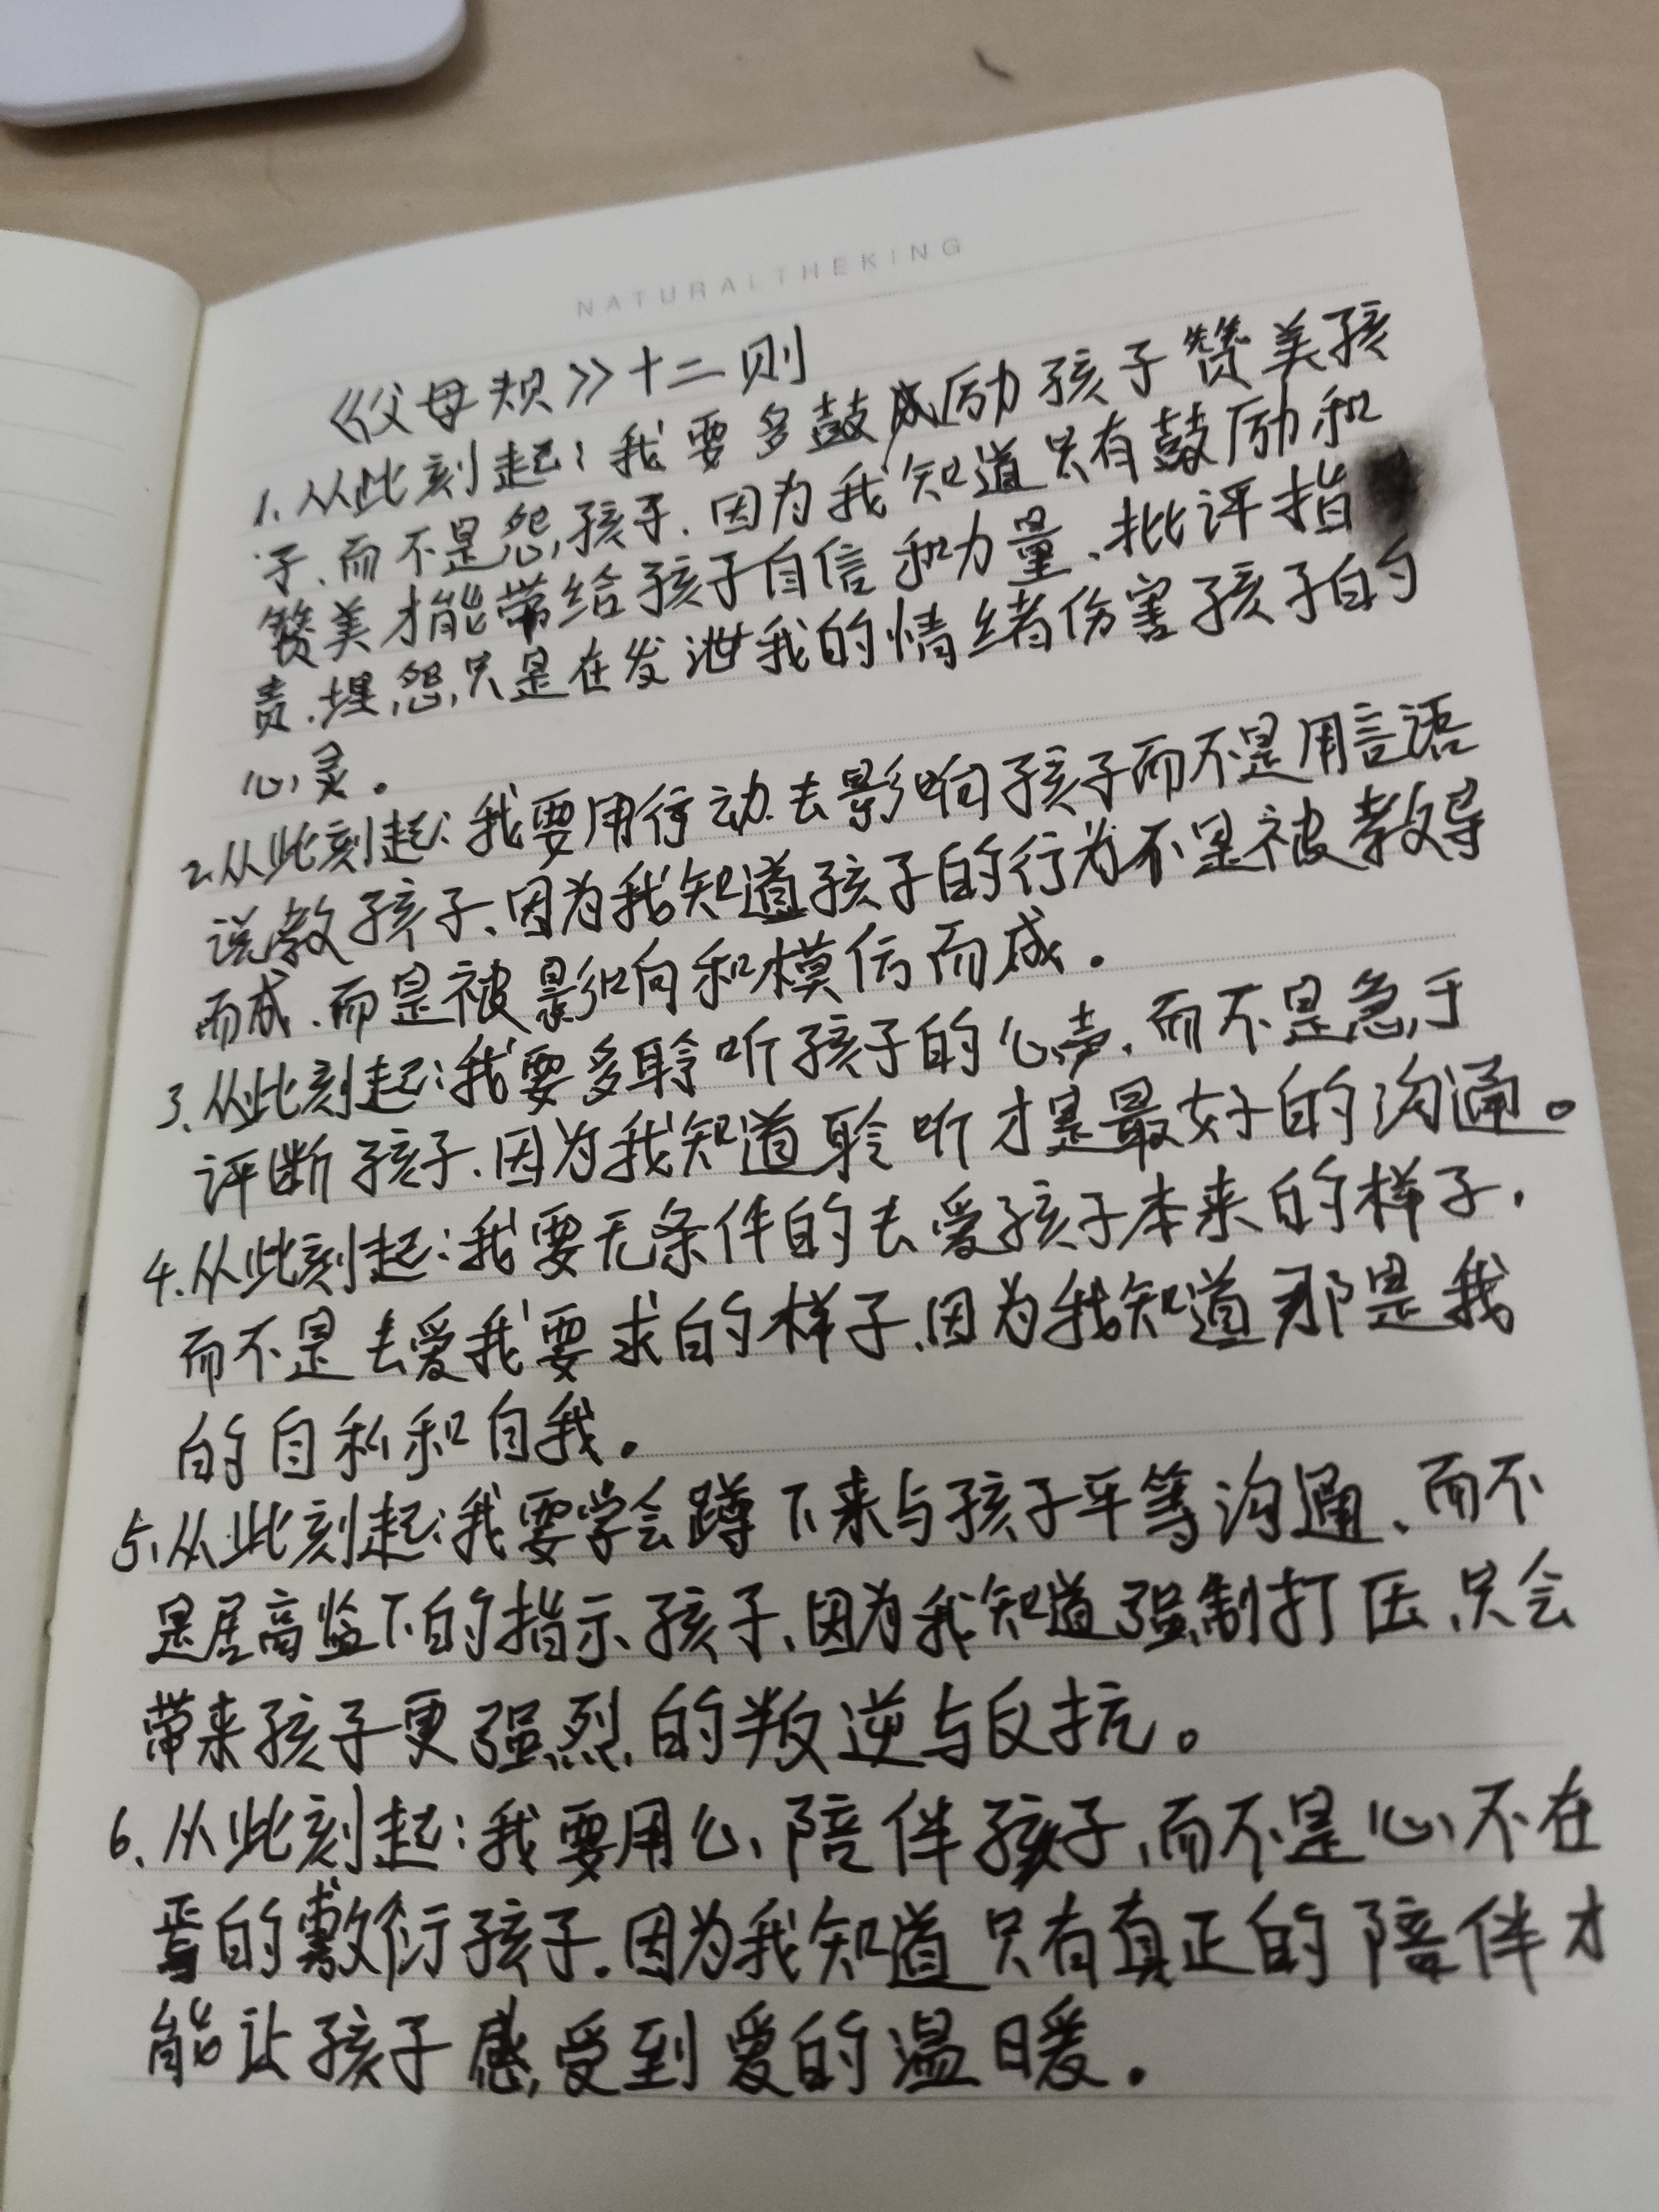 NATURALTHEKING
《父母规》十二则
1.从此刻起:我要多鼓励孩子赞美孩
子、而不是怨孩子.因为我知道只有鼓励和
赞美才能带给孩子自信和力量、批评指
责.埋怨只是在发泄我的情绪伤害孩子的
心灵。
2.从此刻起:我要用行动去影响孩子而不是用言语
说教孩子、因为我知道孩子的行为不是被教导
而成、而是被影响和模仿而成.
3.从此刻起:我要多聆听孩子的心声.而不是急于
评断孩子.因为我知道聆听才是最好的沟通。
4.从此刻起:我要无条件的去爱孩子本来的样子.
而不是去爱我要求的样子.因为我知道那是我
的自私和自我.
5.从此刻起:我要学会蹲下来与孩子平等沟通、而不
是居高监下的指示孩子、因为我知道强制打压、只会
带来孩子更强烈的叛逆与反抗。
6.从此刻起:我要用心陪伴孩子、而不是心不在
焉的敷衍孩子.因为我知道只有真正的陪伴才
能让孩子感受到爱的温暖.